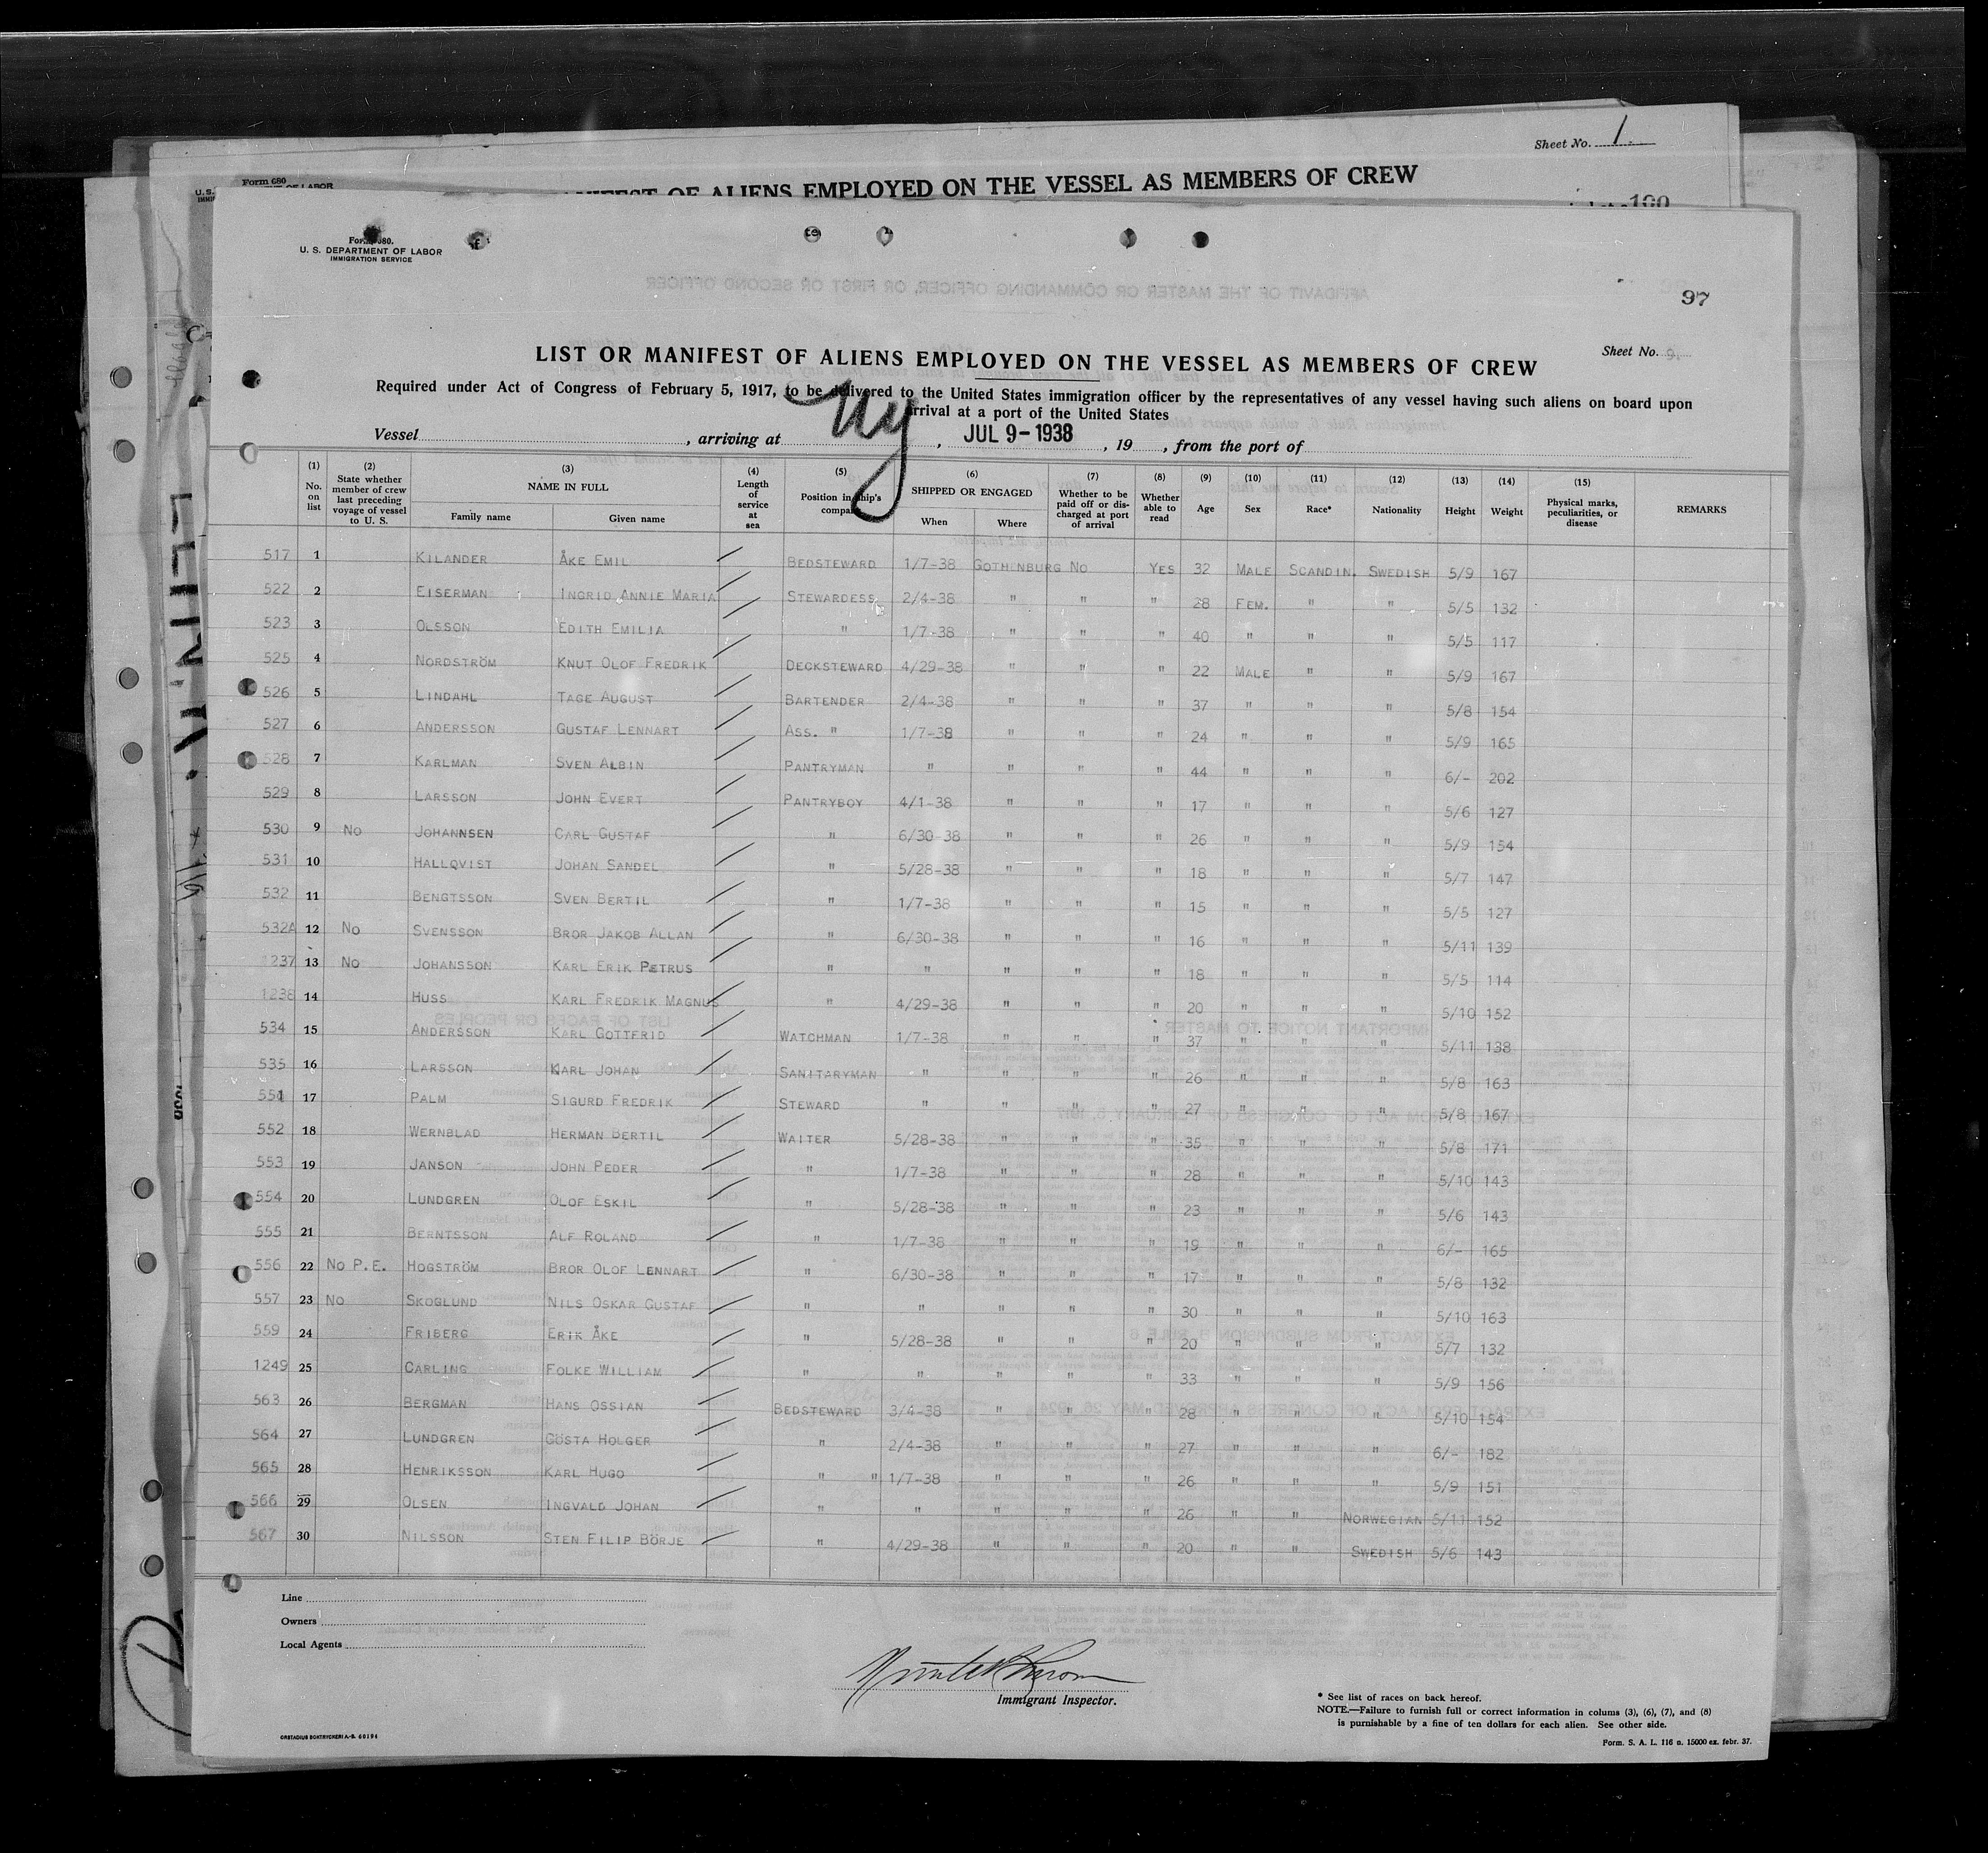 Sheet No. 1.
Form 680
MANIFEST OF ALIENS EMPLOYED ON THE VESSEL AS MEMBERS OF CREW
100
Form 680.
U. S. DEPARTMENT OF LABOR
IMMIGRATION SERVICE
97
LIST OR MANIFEST OF ALIENS EMPLOYED ON THE VESSEL AS MEMBERS OF CREW
Sheet No. 9.
Required under Act of Congress of February 5, 1917, to be delivered to the United States immigration officer by the representatives of any vessel having such aliens on board upon
arrival at a port of the United States
Vessel, arriving at Ny, JUL 9-1938, 19, from the port of
(1) No. on list (2) State whether member of crew last preceding voyage of vessel to U. S. (3) NAME IN FULL Family name Given name (4) Length of service at sea (5) Position in ship's company (6) SHIPPED OR ENGAGED When Where (7) Whether to be paid off or discharged at port of arrival (8) Whether able to read (9) Age (10) Sex (11) Race* (12) Nationality (13) Height (14) Weight (15) Physical marks, peculiarities, or disease REMARKS
517 1 KILANDER ÅKE EMIL BEDSTEWARD 1/7-38 GOTHENBURG NO YES 32 MALE SCANDIN. SWEDISH 5/9 167
522 2 EISERMAN INGRID ANNIE MARIA STEWARDESS 2/4-38 " " " 28 FEM. " " 5/5 132
523 3 OLSSON EDITH EMILIA " 1/7-38 " " " 40 " " " 5/5 117
525 4 NORDSTRÖM KNUT OLOF FREDRIK DECKSTEWARD 4/29-38 " " " 22 MALE " " 5/9 167
526 5 LINDAHL TAGE AUGUST BARTENDER 2/4-38 " " " 37 " " " 5/8 154
527 6 ANDERSSON GUSTAF LENNART ASS. " 1/7-38 " " " 24 " " " 5/9 165
528 7 KARLMAN SVEN ALBIN PANTRYMAN " " " " 44 " " " 6/- 202
529 8 LARSSON JOHN EVERT PANTRYBOY 4/1-38 " " " 17 " " " 5/6 127
530 9 NO JOHANNSEN CARL GUSTAF " 6/30-38 " " " 26 " " " 5/9 154
531 10 HALLQVIST JOHAN SANDEL " 5/28-38 " " " 18 " " " 5/7 147
532 11 BENGTSSON SVEN BERTIL " 1/7-38 " " " 15 " " " 5/5 127
532A 12 NO SVENSSON BROR JAKOB ALLAN " 6/30-38 " " " 16 " " " 5/11 139
1237 13 NO JOHANSSON KARL ERIK PETRUS " " " " " 18 " " " 5/5 114
1238 14 HUSS KARL FREDRIK MAGNUS " 4/29-38 " " " 20 " " " 5/10 152
534 15 ANDERSSON KARL GOTTFRID WATCHMAN 1/7-38 " " " 37 " " " 5/11 138
535 16 LARSSON KARL JOHAN SANITARYMAN " " " " 26 " " " 5/8 163
551 17 PALM SIGURD FREDRIK STEWARD " " " " 27 " " " 5/8 167
552 18 WERNBLAD HERMAN BERTIL WAITER 5/28-38 " " " 35 " " " 5/8 171
553 19 JANSON JOHN PEDER " 1/7-38 " " " 28 " " " 5/10 143
554 20 LUNDGREN OLOF ESKIL " 5/28-38 " " " 23 " " " 5/6 143
555 21 BERNTSSON ALF ROLAND " 1/7-38 " " " 19 " " " 6/- 165
556 22 NO P.E. HOGSTRÖM BROR OLOF LENNART " 6/30-38 " " " 17 " " " 5/8 132
557 23 NO SKOGLUND NILS OSKAR GUSTAF " " " " " 30 " " " 5/10 163
559 24 FRIBERG ERIK ÅKE " 5/28-38 " " " 20 " " " 5/7 132
1249 25 CARLING FOLKE WILLIAM " " " " " 33 " " " 5/9 156
563 26 BERGMAN HANS OSSIAN BEDSTEWARD 3/4-38 " " " 28 " " " 5/10 154
564 27 LUNDGREN GÖSTA HOLGER " 2/4-38 " " " 27 " " " 6/- 182
565 28 HENRIKSSON KARL HUGO " " 1/7-38 " " " 26 " " " 5/9 151
566 29 OLSEN INGVALD JOHAN " " " " " 26 " " NORWEGIAN 5/11 152
567 30 NILSSON STEN FILIP BÖRJE " 4/29-38 " " " 20 " " SWEDISH 5/6 143
Line
Owners
Local Agents
Immigrant Inspector.
* See list of races on back hereof.
NOTE.—Failure to furnish full or correct information in colums (3), (6), (7), and (8)
is punishable by a fine of ten dollars for each alien. See other side.
ORSTADIUS BOKTRYCKERI A.-B. 60194
Form. S. A. L. 116 n. 15000 ex. febr. 37.